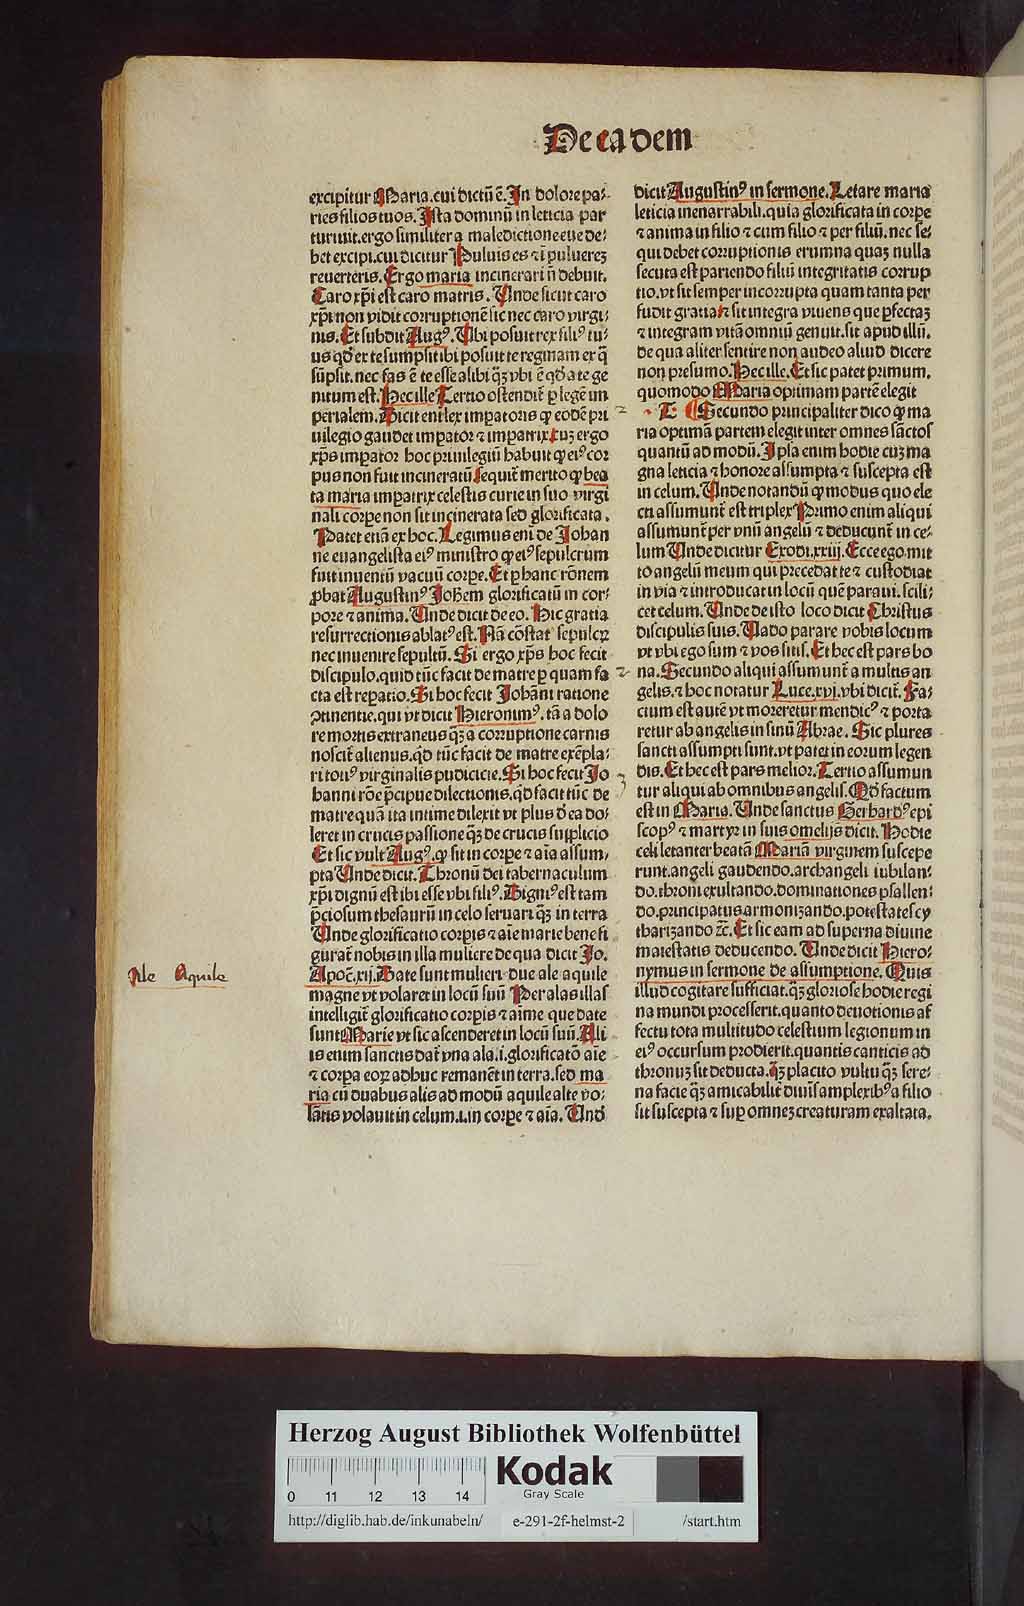 De eadem
excipitur Maria. cui dictū ē. In dolore pa⸗
ries filios tuos. Ista dominū in leticia par
turiuit. ergo similiter a maledictione eue de⸗
bet excipi. cui dicitur Puluis es ⁊ ī puluereꝫ
reuerteris. Ergo maria incinerari nō debuit.
Caro xp̄i est caro matris. Unde sicut caro
xp̄i non vidit corruptionē sic nec caro virgi⸗
nis. Et subdit Augꝰ. Ubi posuit rex filiꝰ tu⸗
us qd̄ ex te sumpsit ibi posuit te reginam ex q̄
sūpsit. nec fas ē te esse alibi q̄ꝫ vbi ē qd̄ a te ge
nitum est. Hec ille Tertio ostendit̄ ꝑ legē im
perialem. Dicit em̄ lex imp̄atoris ꝙ eodē pri
uilegio gaudet imp̄ator ⁊ imp̄atrix. cuꝫ ergo
xp̄s imp̄ator hoc priuilegiū habuit ꝙ eiꝰ cor
pus non fuit incineratū sequit̄ merito ꝙ bea
ta maria imp̄atrix celestis curie in suo virgi
nali corꝑe non sit incinerata sed glorificata.
Patet etiā ex hoc. Legimus eni de Johan
ne euangelista eiꝰ ministro ꝙ eiꝰ sepulcrum
fuit inuentū vacuū corꝑe. Et ꝑ hanc rōnem
ꝓbat Augustinꝰ Joħem glorificatū in cor⸗
pore ⁊ anima. Unde dicit de eo. Hic gratia
resurrectionis ablatꝰ est. Nā cōstat sepulcrꝫ
nec inuenire sepultū. Si ergo xp̄s hoc fecit
discipulo. quid tūc facit de matre ꝑ quam fa
cta est reꝑatio. Si hoc fecit Johāni ratione
ꝯtinentie. qui vt dicit Hieronimꝰ. tā a dolo
re mortis extraneus q̄ꝫ a corruptione carnis
noscit̄ alienus. qd̄ tūc facit de matre exēpla⸗
ri totiꝰ virginalis pudicicie. Si hoc fecit Jo
hanni rōe p̄cipue dilectionis. qd̄ facit tūc de
matre quā ita intime dilexit vt plus d̄ ea do⸗
leret in crucis passione q̄ꝫ de crucis supplicio
Et sic vult Augꝰ. ꝙ sit in corꝑe ⁊ aīa assum⸗
pta Unde dicit. Thronū dei tabernaculum
xp̄i dignū est ibi esse vbi filiꝰ. Digniꝰ est tam
p̄ciosum thesaurū in celo seruari q̄ꝫ in terra
Unde glorificatio corꝑis ⁊ aīe marie bene fi
gurat̄ nobis in illa muliere de qua dicit Jo.
Apoc̄. xij. Date sunt mulieri due ale aquile
magne vt volaret in locū suū Per alas illas
intelligit̄ glorificatio corꝑis ⁊ aīme que date
sunt Marie vt sic ascenderet in locū suū. Ali
is enim sanctis dat̄ vna ala. i. glorificato aīe
⁊ corꝑa eoꝝ adhuc remanēt in terra. sed ma
ria cū duabus alis ad modū aquile alte vo⸗
lātis volauit in celum. i. in corꝑe ⁊ aīa. Und̄
Ale Aquile
dicit Augustinꝰ in sermone. Letare maria
leticia inenarrabili. quia glorificata in corꝑe
⁊ anima in filio ⁊ cum filio ⁊ per filiū. nec se⸗
qui debet corruptionis erumna quaꝫ nulla
secuta est pariendo filiū integritatis corrup
tio. vt sit semper incorrupta quam tanta per
fudit gratia ⁊ sit integra viuens que ꝑfectaꝫ
⁊ integram vitā omniū genuit. sit apud illū.
de qua aliter sentire non audeo aliud dicere
non presumo. Hec ille. Et sic patet primum.
quomodo Maria optimam partē elegit
T. Secundo principaliter dico ꝙ ma
ria optimā partem elegit inter omnes sāctos
quantū ad modū. Ipsa enim hodie cuꝫ ma
gna leticia ⁊ honore assumpta ⁊ suscepta est
in celum. Unde notandū ꝙ modus quo ele
cti assumunt̄ est triplex Primo enim aliqui
assumunt̄ per vnū angelū ⁊ deducunt̄ in ce⸗
lum Unde dicitur Exodi. xxiij. Ecce ego mit
to angelū meum qui precedat te ⁊ custodiat
in via ⁊ introducat in locū quē paraui. scili⸗
cet celum. Unde de isto loco dicit Christus
discipulis suis. Vado parare vobis locum
vt vbi ego sum ⁊ vos sitis. Et hec est pars bo
2
na. Secundo aliqui assumunt̄ a multis an
gelis. ⁊ hoc notatur Luce. xvj. vbi dicit̄. Fa⸗
ctum est autē vt moreretur mendicꝰ ⁊ porta
retur ab angelis in sinū Abrae. Sic plures
sancti assumpti sunt. vt patet in eorum legen
3
dis. Et hec est pars melior. Tertio assumun
tur aliqui ab omnibus angelis. Qd̄ factum
est in Maria. Unde sanctus Gerhardꝰ epi
scopꝰ ⁊ martyr in suis omelijs dicit. Hodie
celi letanter beatā Mariā virginem suscepe
runt. angeli gaudendo. archangeli iubilan⸗
do. throni exultando. dominationes psallen⸗
do. principatus armonizando. potestates cy
tharizando ꝛc̄. Et sic eam ad superna diuine
maiestatis deducendo. Unde dicit Hiero⸗
nymus in sermone de assumptione. Quis
illud cogitare sufficiat. q̄ꝫ gloriose hodie regi
na mundi processerit. quanto deuotionis af
fectu tota multitudo celestium legionum in
eiꝰ occursum prodierit. quantis canticis ad
thronuꝫ sit deducta. q̄ꝫ placito vultu q̄ꝫ sere⸗
na facie q̄ꝫ amicabilit̄ diuīs amplexibꝰ a filio
sit suscepta ⁊ suꝑ omneꝫ creaturam exaltata.
Herzog August Bibliothek Wolfenbüttel
0 11 12 13 14
Kodak
Gray Scale
http://diglib.hab.de/inkunabeln/ e-291-2f-helmst-2 /start.htm